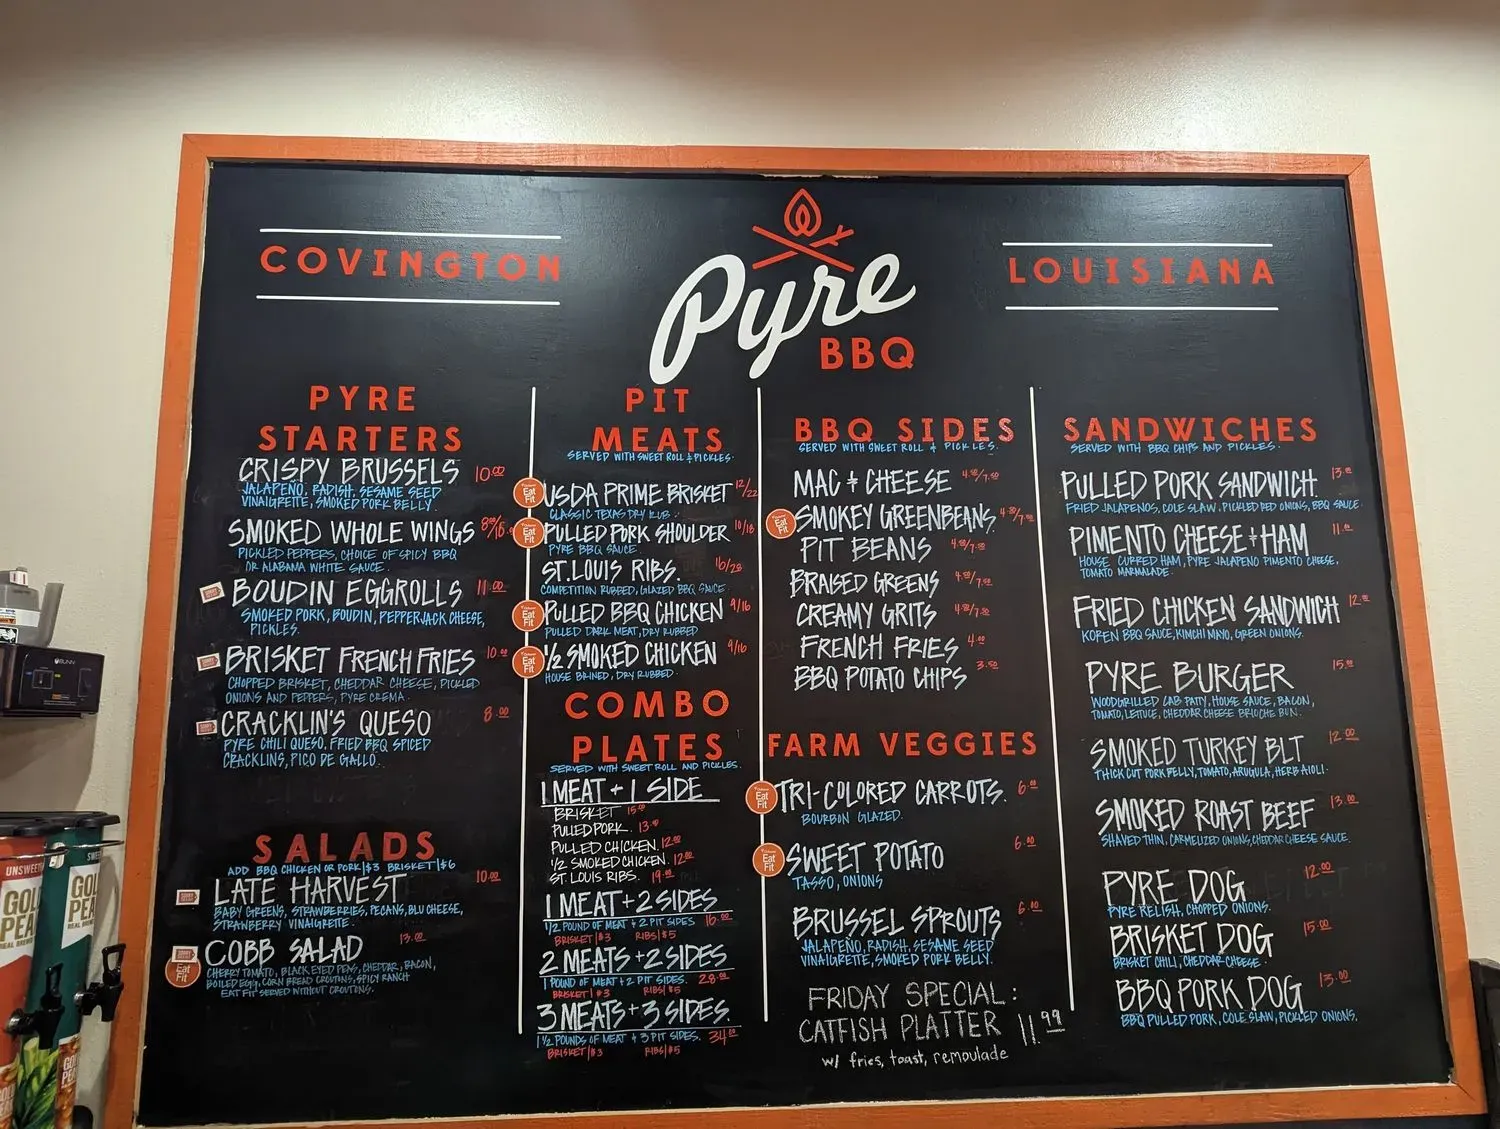 COVINGTON
Pyre
BBQ
LOUISIANA
PYRE
STARTERS
CRISPY BRUSSELS 10.00
JALAPEÑO, RADISH, SESAME SEED
VINAIGRETTE, SMOKED PORK BELLY.
SMOKED WHOLE WINGS
PICKLED PEPPERS, CHOICE OF SPICY BBQ
OR ALABAMA WHITE SAUCE.
BOUDIN EGGROLLS 11.00
SMOKED PORK, BOUDIN, PEPPERJACK CHEESE,
PICKLES.
BRISKET FRENCH FRIES 10.00
CHOPPED BRISKET, CHEDDAR CHEESE, PICKLED
ONIONS AND PEPPERS, PYRE CREMA.
CRACKLIN'S QUESO 8.00
PYRE CHILI QUESO, FRIED BBQ SPICED
CRACKLINS, PICO DE GALLO.
SALADS
ADD BBQ CHICKEN OR PORK|$3 BRISKET|$6
LATE HARVEST 10.00
BABY GREENS, STRAWBERRIES, PECANS, BLU CHEESE,
STRAWBERRY VINAIGRETTE.
Eat Fit
COBB SALAD 13.00
CHERRY TOMATO, BLACK EYED PEAS, CHEDDAR, BACON,
BOILED EGG, CORN BREAD CROUTONS, SPICY RANCH
EAT FIT SERVED WITHOUT CROUTONS.
PIT
MEATS
SERVED WITH SWEET ROLL & PICKLES.
Eat Fit
USDA PRIME BRISKET 12/22
CLASSIC TEXAS DRY RUB.
Eat Fit
PULLED PORK SHOULDER 10/18
PYRE BBQ SAUCE.
ST. LOUIS RIBS. 16/28
COMPETITION RUBBED, GLAZED BBQ SAUCE.
Eat Fit
PULLED BBQ CHICKEN 9/16
PULLED DARK MEAT, DRY RUBBED
Eat Fit
1/2 SMOKED CHICKEN 9/16
HOUSE BRINED, DRY RUBBED.
COMBO
PLATES
SERVED WITH SWEET ROLL AND PICKLES.
1 MEAT + 1 SIDE
BRISKET 15.00
PULLED PORK. 13.00
PULLED CHICKEN. 12.00
1/2 SMOKED CHICKEN. 12.00
ST LOUIS RIBS. 19.00
1 MEAT + 2 SIDES
1/2 POUND OF MEAT + 2 PIT SIDES 16.00
BRISKET|$3 RIBS|$5
2 MEATS + 2 SIDES
1 POUND OF MEAT + 2 PIT SIDES. 28.00
BRISKET|$3 RIBS|$5
3 MEATS + 3 SIDES.
1 1/2 POUNDS OF MEAT + 3 PIT SIDES. 34.00
BRISKET|$3 RIBS|$5
BBQ SIDES
SERVED WITH SWEET ROLL & PICKLES.
MAC & CHEESE 4.50/7.50
Eat Fit
SMOKEY GREENBEANS 4.50/7.50
PIT BEANS 4.50/7.50
BRAISED GREENS 4.50/7.50
CREAMY GRITS 4.50/7.50
FRENCH FRIES 4.00
BBQ POTATO CHIPS 3.50
FARM VEGGIES
Eat Fit
TRI-COLORED CARROTS. 6.00
BOURBON GLAZED.
Eat Fit
SWEET POTATO 6.00
TASSO, ONIONS
BRUSSEL SPROUTS 6.00
JALAPEÑO, RADISH, SESAME SEED
VINAIGRETTE, SMOKED PORK BELLY.
FRIDAY SPECIAL:
CATFISH PLATTER 11.99
w/ fries, toast, remoulade
SANDWICHES
SERVED WITH BBQ CHIPS AND PICKLES.
PULLED PORK SANDWICH 13.00
FRIED JALAPENOS, COLE SLAW, PICKLED RED ONIONS, BBQ SAUCE
PIMENTO CHEESE & HAM 11.00
HOUSE CURRED HAM, PYRE JALAPENO PIMENTO CHEESE,
TOMATO MARMALADE.
FRIED CHICKEN SANDWICH 12.00
KOREN BBQ SAUCE, KIMCHI MAYO, GREEN ONIONS.
PYRE BURGER 15.00
WOODGRILLED CAB PATTY, HOUSE SAUCE, BACON,
TOMATO, LETUCE, CHEDDAR CHEESE BRIOCHE BUN.
SMOKED TURKEY BLT 12.00
THICK CUT PORK BELLY, TOMATO, ARUGULA, HERB AIOLI.
SMOKED ROAST BEEF 13.00
SHAVED THIN, CARMELIZED ONIONS, CHEDDAR CHEESE SAUCE.
PYRE DOG 12.00
PYRE RELISH, CHOPPED ONIONS.
BRISKET DOG 15.00
BRISKET CHILI, CHEDDAR CHEESE.
BBQ PORK DOG 13.00
BBQ PULLED PORK, COLE SLAW, PICKLED ONIONS.
BUNN